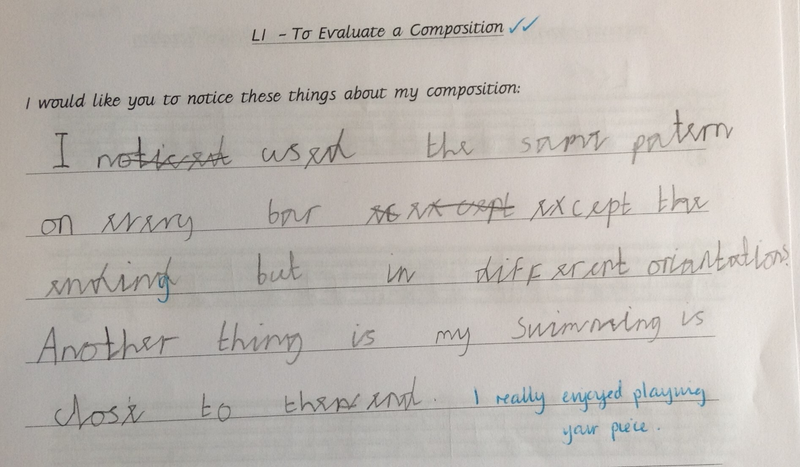 LI - To Evaluate a Composition ✓✓
I would like you to notice these things about my composition:
I noticed used the same patern
on every bar except the
ending but in different oriantations.
Another thing is my swimming is
close to the end. I really enjoyed playing
your piece.